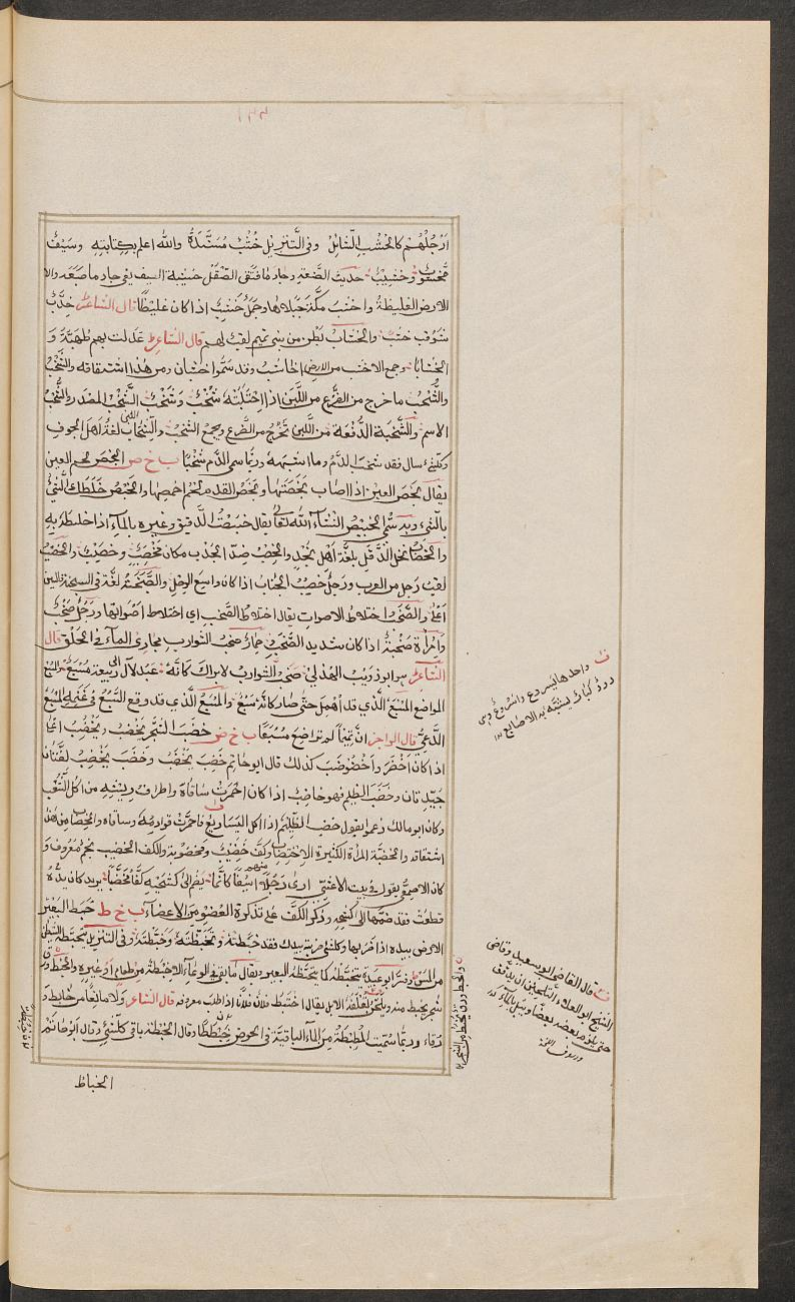 ١٣٣
ارجلهم كالخشب الشائل وفى التنزيل خشب مسندة والله اعلم بكتابه وسيف
مخشوب وخشيب حديث الصنعة
الارض الغليظة واخشبا مكة جبلاها وجمل خشب اذا كان غليظا قال الشاعر خدب
شوقب خشب والخشاب بطون من بنى تميم لقب لهم قال الشاعر عدلت بهم طهية و
الخشابا وجمع الاخشب من الارض اخاشب وقد سموا خشبان ومن هذا اشتقاقه والشخب
والشخب ما خرج من الضرع من اللبن اذا احتلبته شخب وشخب الشخب المصدر والشخب
الاسم والشخبة الدفعة من اللبن تخرج من الضرع وجمع الشخب والشخاب اللبن لغة اهل الجوف
وكل شئ سال فقد شخب الدم وما اشبهه وربما سمى الدم شخبا ب خ ص البخص لحم العين
يقال بخص العين اذا اصاب بخصتها وبخص القدم لحم اخمصها والخبص خلطك الشئ
بالشئ وبه سمى الخبيص ان شاء الله تعالى يقال خبصت الدقيق وغيره بالماء اذا خلطته به
والخصاب نخل الدقل بلغة اهل نجد والخصب ضد الجدب مكان مخصب وخصيب والخصيب
لقب رجل من العرب ورجل خصيب الجناب اذا كان واسع الرحل والصخبة لغة فى السبخة والسين
اعلى والصخب اختلاط الاصوات يقال اختلاط الصخب اى اختلاط اصواتها ورجل صخب
وامراة صخبة اذا كان شديد الصخب وحمار صخب الشوارب مجارى الماء فى الحلق قال
الشاعر هو ابو ذويب الهذلى صخب الشوارب لا يزال كانه عبد لآل ابى ربيعة مسبع المسبع
المواضع المسبع الذى قد اهمل حتى صار كانه سبع والمسبع الذى قد وقع السبع فى غنمه المسبع
الدعى قال الراجز ان تميما لم تراضع مسبعا ب خ ض خضب الشجر يخضب ويخضب
اذا كان اخضر واخضوضب كذلك قال ابو حاتم خضب يخضب وخضب يخضب لغتان
جيدتان وخضب الظليم فهو خاضب اذا كان احمرت ساقاه واطراف ريشه من اكل
وكان ابو مالك يقول خضب الظليم اذا اكل اليساريع فاحمرت قوادمه وساقاه والخضاب من هذا
اشتقاقه والخضبة المراة الكثيرة الاختضاب وكف خضيب ومخضوبة والكف الخضيب نجم معروف و
كان الاصمعى يقول فى بيت الاعشى ارى رجلا منهم اسيفا كانما يضم الى كشحيه كفا مخضبا يريد كان يده
قطعت فقد ضمها الى كشحه وذكر الكف على تذكرة العضو من الاعضاء ب خ ط خبط البعير
الارض بيده اذا ضربها وكل شئ ضربته بيدك فقد خبطته وتخبطته وفى التنزيل يتخبطه الشيطان
من المس وفسر ابو عبيدة يتخبطه كما يتخبطه البعير ويقال ما بقى فى الوعاء الا خبطة من طعام او غيره والخبط ورق
شجر يخبط فتعلفه الابل يقال اختبط فلان فلانا اذا طلب معروفه قال الشاعر ولا مانعا من خابط
ورقا وربما سميت الخبطة من الماء الباقية فى الحوض خبطا وقال الخبطة باقى كل شئ وقال ابو حاتم
الخباط
ف واحدها يسروع واسروع وهى
دود كبار يشبه به الاصابع
ف قال القاضى ابو سعيد وقاضى
الشيخ ابو العلاء والتلجين ان يدق
حتى يلزم بعضه بعضا ويبل بالماء
ن والخبط ورق يخبط من الشجر